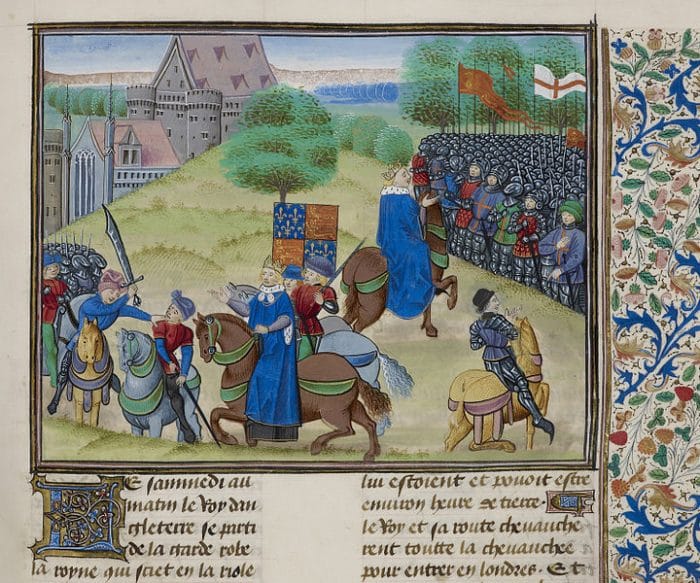 Le samnedi au
matin le Roy dan
gleterre se parti
de la garde robe
la royne qui sciet en la riole
lui estoient et pouoit estre
enuiron heure de tierce.
le Roy et sa route cheuauche
rent toutte la cheuauchee
pour entrer en londres. Et